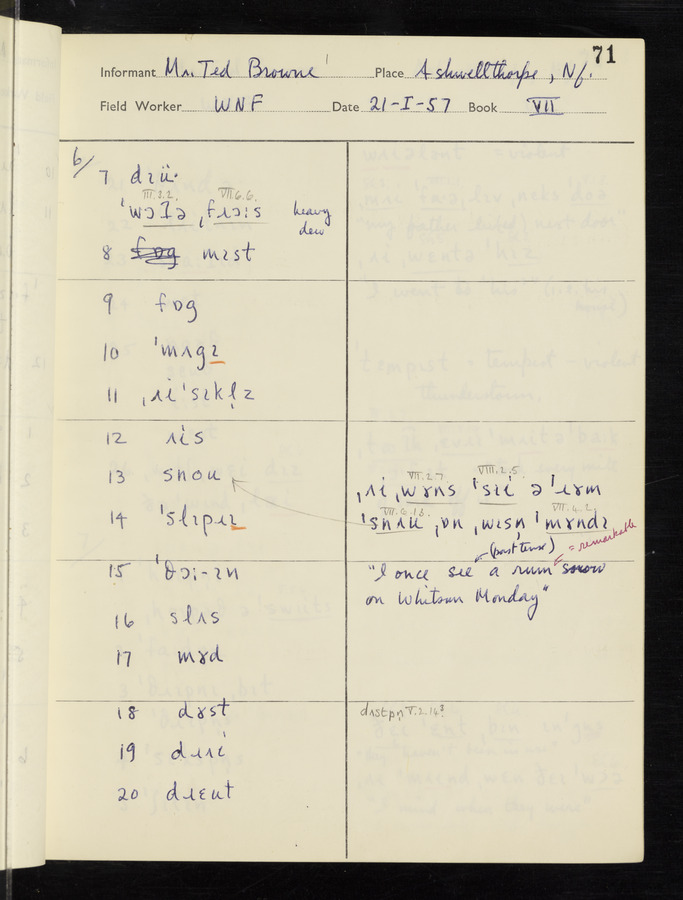 71
Informant Mr. Ted Browne Place Ashwellthorpe, Nf.
Field Worker WNF Date 21-I-57 Book VII
6/
7 dɹü·
III.3.2. VII.6.6.
heavy
dew
8 mɪst
9 fɒg
10 ˈmʌgɪ
11 ˌʌiˈsɪkl̩z
12 ʌis
13 snou
14 ˈslɪpɪ
15 ˈθɔ:-ɪn
16 slʌs
17 mɤd
18 dɤst
19 dɹʌi
20 dɹɛut
VII.2.7 VIII.2.5.
ˌʌi ˌwɤns ˈsɪi ə ˈɹɤm
ˈsnʌu ˌɒn ˌwɪsn̩ ˈmɤndɪ
(past tense) = remarkable
"I once see a rum snow
on Whitsun Monday"